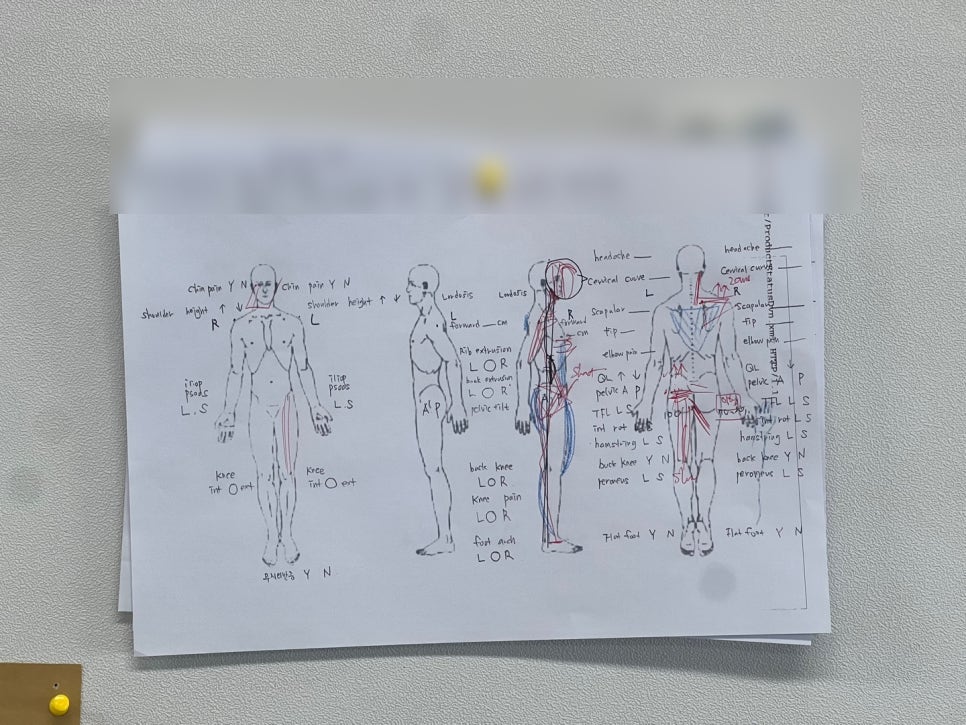 chin pain Y N
chin pain Y N
shoulder height ↑ ↓
shoulder height ↑ ↓
R
L
psoas
L.S
psoas
L.S
knee
int O ext
knee
int O ext
Y N
Lordosis
Lordosis
L
forward cm
R
forward
cm
Rib extrusion
L O R
L O R
pelvic tilt
A P
A
back knee
L O R
knee pain
L O R
foot arch
L O R
headache
Cervical curve
L
scapular
tip
elbow pain
QL ↑ ↓
pelvic A P
TFL L S
int rot
hamstring L S
back knee Y N
peroneus L S
Flat foot Y N
headache
Cervical curv
R
scapular
tip
elbow
QL
pelvic A P
TFL L S
int rot L S
hamstring L S
back knee Y N
peroneus L S
Flat foot Y N